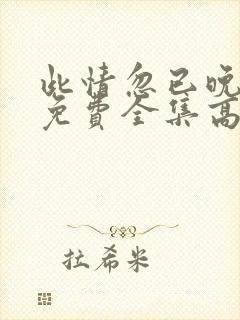 此情忽已晚
免費全集高
拉希米